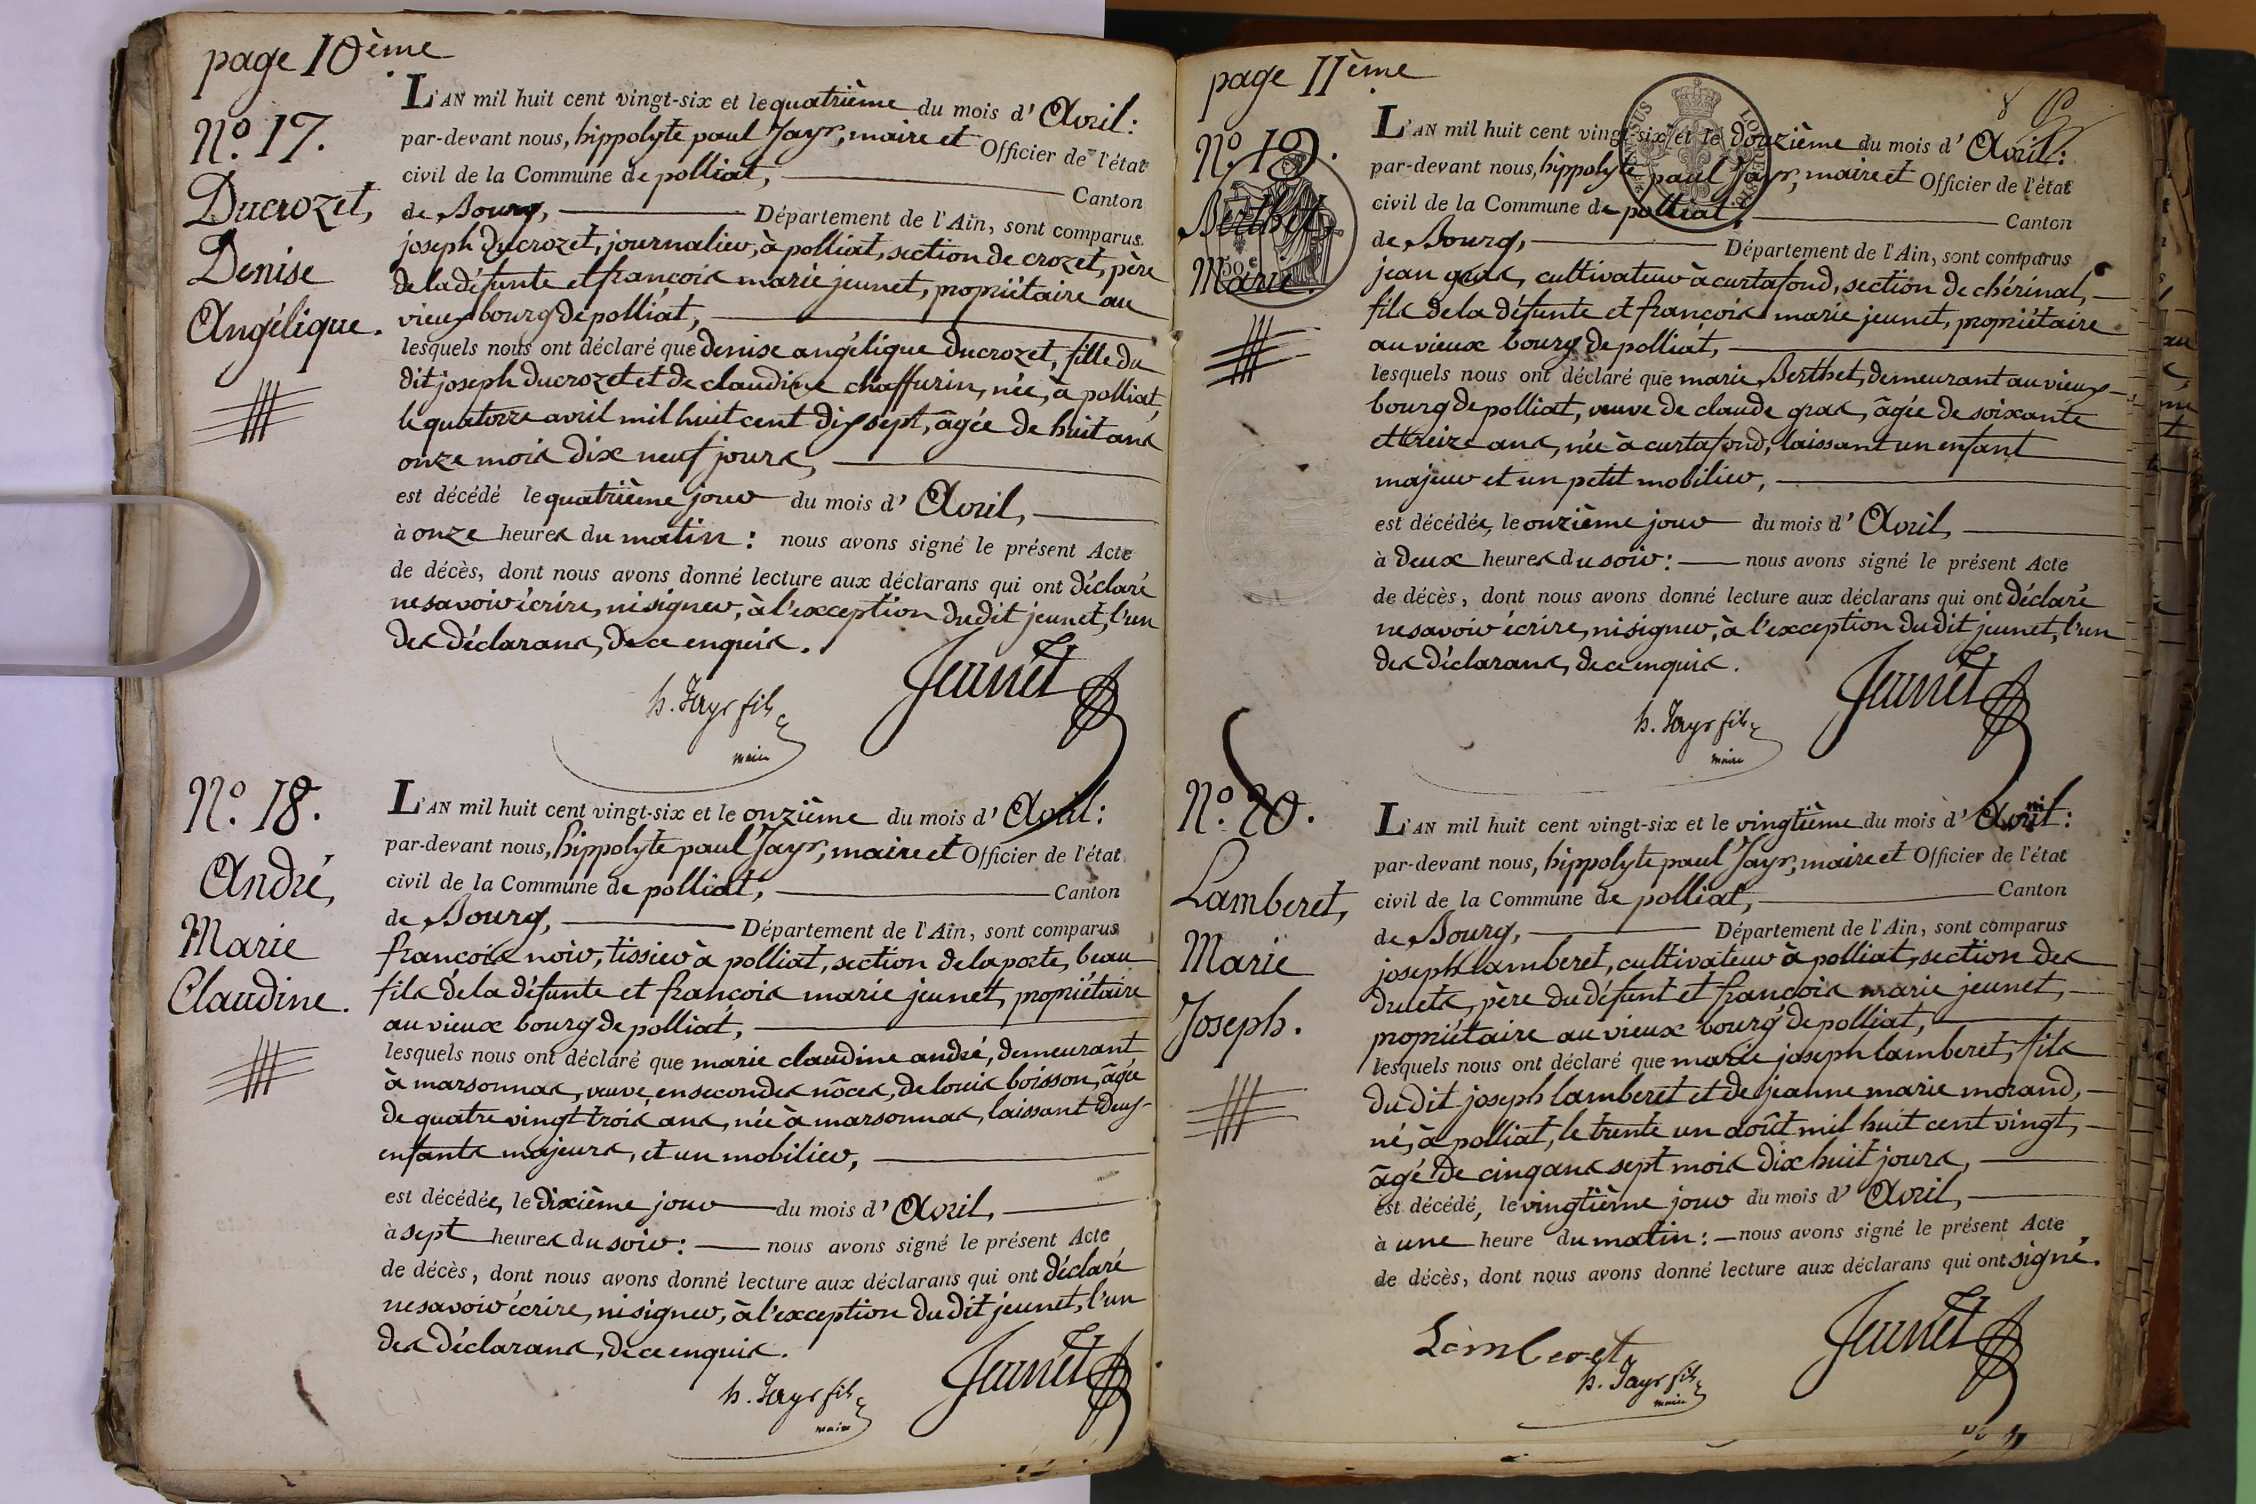 page 10ème
N.o 17.
Ducrozet,
Denise
Angélique.
L'AN mil huit cent vingt-six et le quatrième du mois d' Avril:
par-devant nous, hippolyte paul Jayr, maire et Officier de l'état
civil de la Commune de polliat, Canton
de Bourg, Département de l'Ain, sont comparus
joseph ducrozet, journalier, à polliat, section de crozet, père
de la défunte et françois marie jeunet, propriétaire au
vieux bourg de polliat,
lesquels nous ont déclaré que denise angélique ducrozet, fille du
dit joseph ducrozet et de claudine chaffurin, née, à polliat,
le quatorze avril mil huit cent dix sept, âgée de huit ans
onze mois dix neuf jours,
est décédé le quatrième jour du mois d' Avril,
à onze heures du matin: nous avons signé le présent Acte
de décès, dont nous avons donné lecture aux déclarans qui ont déclaré
ne savoir écrire, ni signer, à l'exception du dit jeunet, l'un
des déclarans, de ce enquis.
h. Jayr fils
maire
Jeunet
N.o 18.
André,
Marie
Claudine.
L'AN mil huit cent vingt-six et le onzième du mois d' Avril:
par-devant nous, hippolyte paul Jayr, maire et Officier de l'état
civil de la Commune de polliat, Canton
de Bourg, Département de l'Ain, sont comparus
françois noir, tissier à polliat, section de la poste, beau
fils de la défunte et françois marie jeunet, propriétaire
au vieux bourg de polliat,
lesquels nous ont déclaré que marie claudine andré, demeurant
à marsonnas, veuve, en secondes nôces, de louis boisson, âgée
de quatre vingt trois ans, née à marsonnas, laissant deux
enfants majeurs, et un mobilier,
est décédée, le dixième jour du mois d' Avril,
à sept heures du soir: nous avons signé le présent Acte
de décès, dont nous avons donné lecture aux déclarans qui ont déclaré
ne savoir écrire, ni signer, à l'exception du dit jeunet, l'un
des déclarans, de ce enquis.
h. Jayr fils
maire
Jeunet
page 11ème
8
N.o 19.
Berthet,
Marie.
L'AN mil huit cent vingt-six et le douzième du mois d' Avril:
par-devant nous, hippolyte paul Jayr, maire et Officier de l'état
civil de la Commune de polliat, Canton
de Bourg, Département de l'Ain, sont comparus
jean gras, cultivateur à curtafond, section de chérinal,
fils de la défunte et françois marie jeunet, propriétaire
au vieux bourg de polliat,
lesquels nous ont déclaré que marie Berthet, demeurant au vieux
bourg de polliat, veuve de claude gras, âgée de soixante
et treize ans, née à curtafond, laissant un enfant
majeur et un petit mobilier,
est décédée, le onzième jour du mois d' Avril,
à deux heures du soir: nous avons signé le présent Acte
de décès, dont nous avons donné lecture aux déclarans qui ont déclaré
ne savoir écrire, ni signer, à l'exception du dit jeunet, l'un
des déclarans, de ce enquis.
h. Jayr fils
maire
Jeunet
N.o 20.
Lamberet,
Marie
Joseph.
L'AN mil huit cent vingt-six et le vingtième du mois d' Avril:
par-devant nous, hippolyte paul Jayr, maire et Officier de l'état
civil de la Commune de polliat, Canton
de Bourg, Département de l'Ain, sont comparus
joseph lamberet, cultivateur à polliat, section des
druets, père du défunt et françois marie jeunet,
propriétaire au vieux bourg de polliat,
lesquels nous ont déclaré que marie joseph lamberet, fils
du dit joseph lamberet et de jeanne marie morand,
né, à polliat, le trente un août mil huit cent vingt,
âgé de cinq ans sept mois dix huit jours,
est décédé, le vingtième jour du mois d' Avril,
à une heure du matin: nous avons signé le présent Acte
de décès, dont nous avons donné lecture aux déclarans qui ont signé.
Lamberet
h. Jayr fils
maire
Jeunet